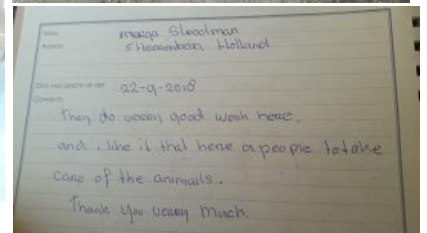 Name Marga Sleeolman
Holland
DATE AND LENGTH OF VISIT 22-9-2018
Comments
They do veery good work heere.
and i like it that here a people to take
care of the animails.
Thank you veery much.